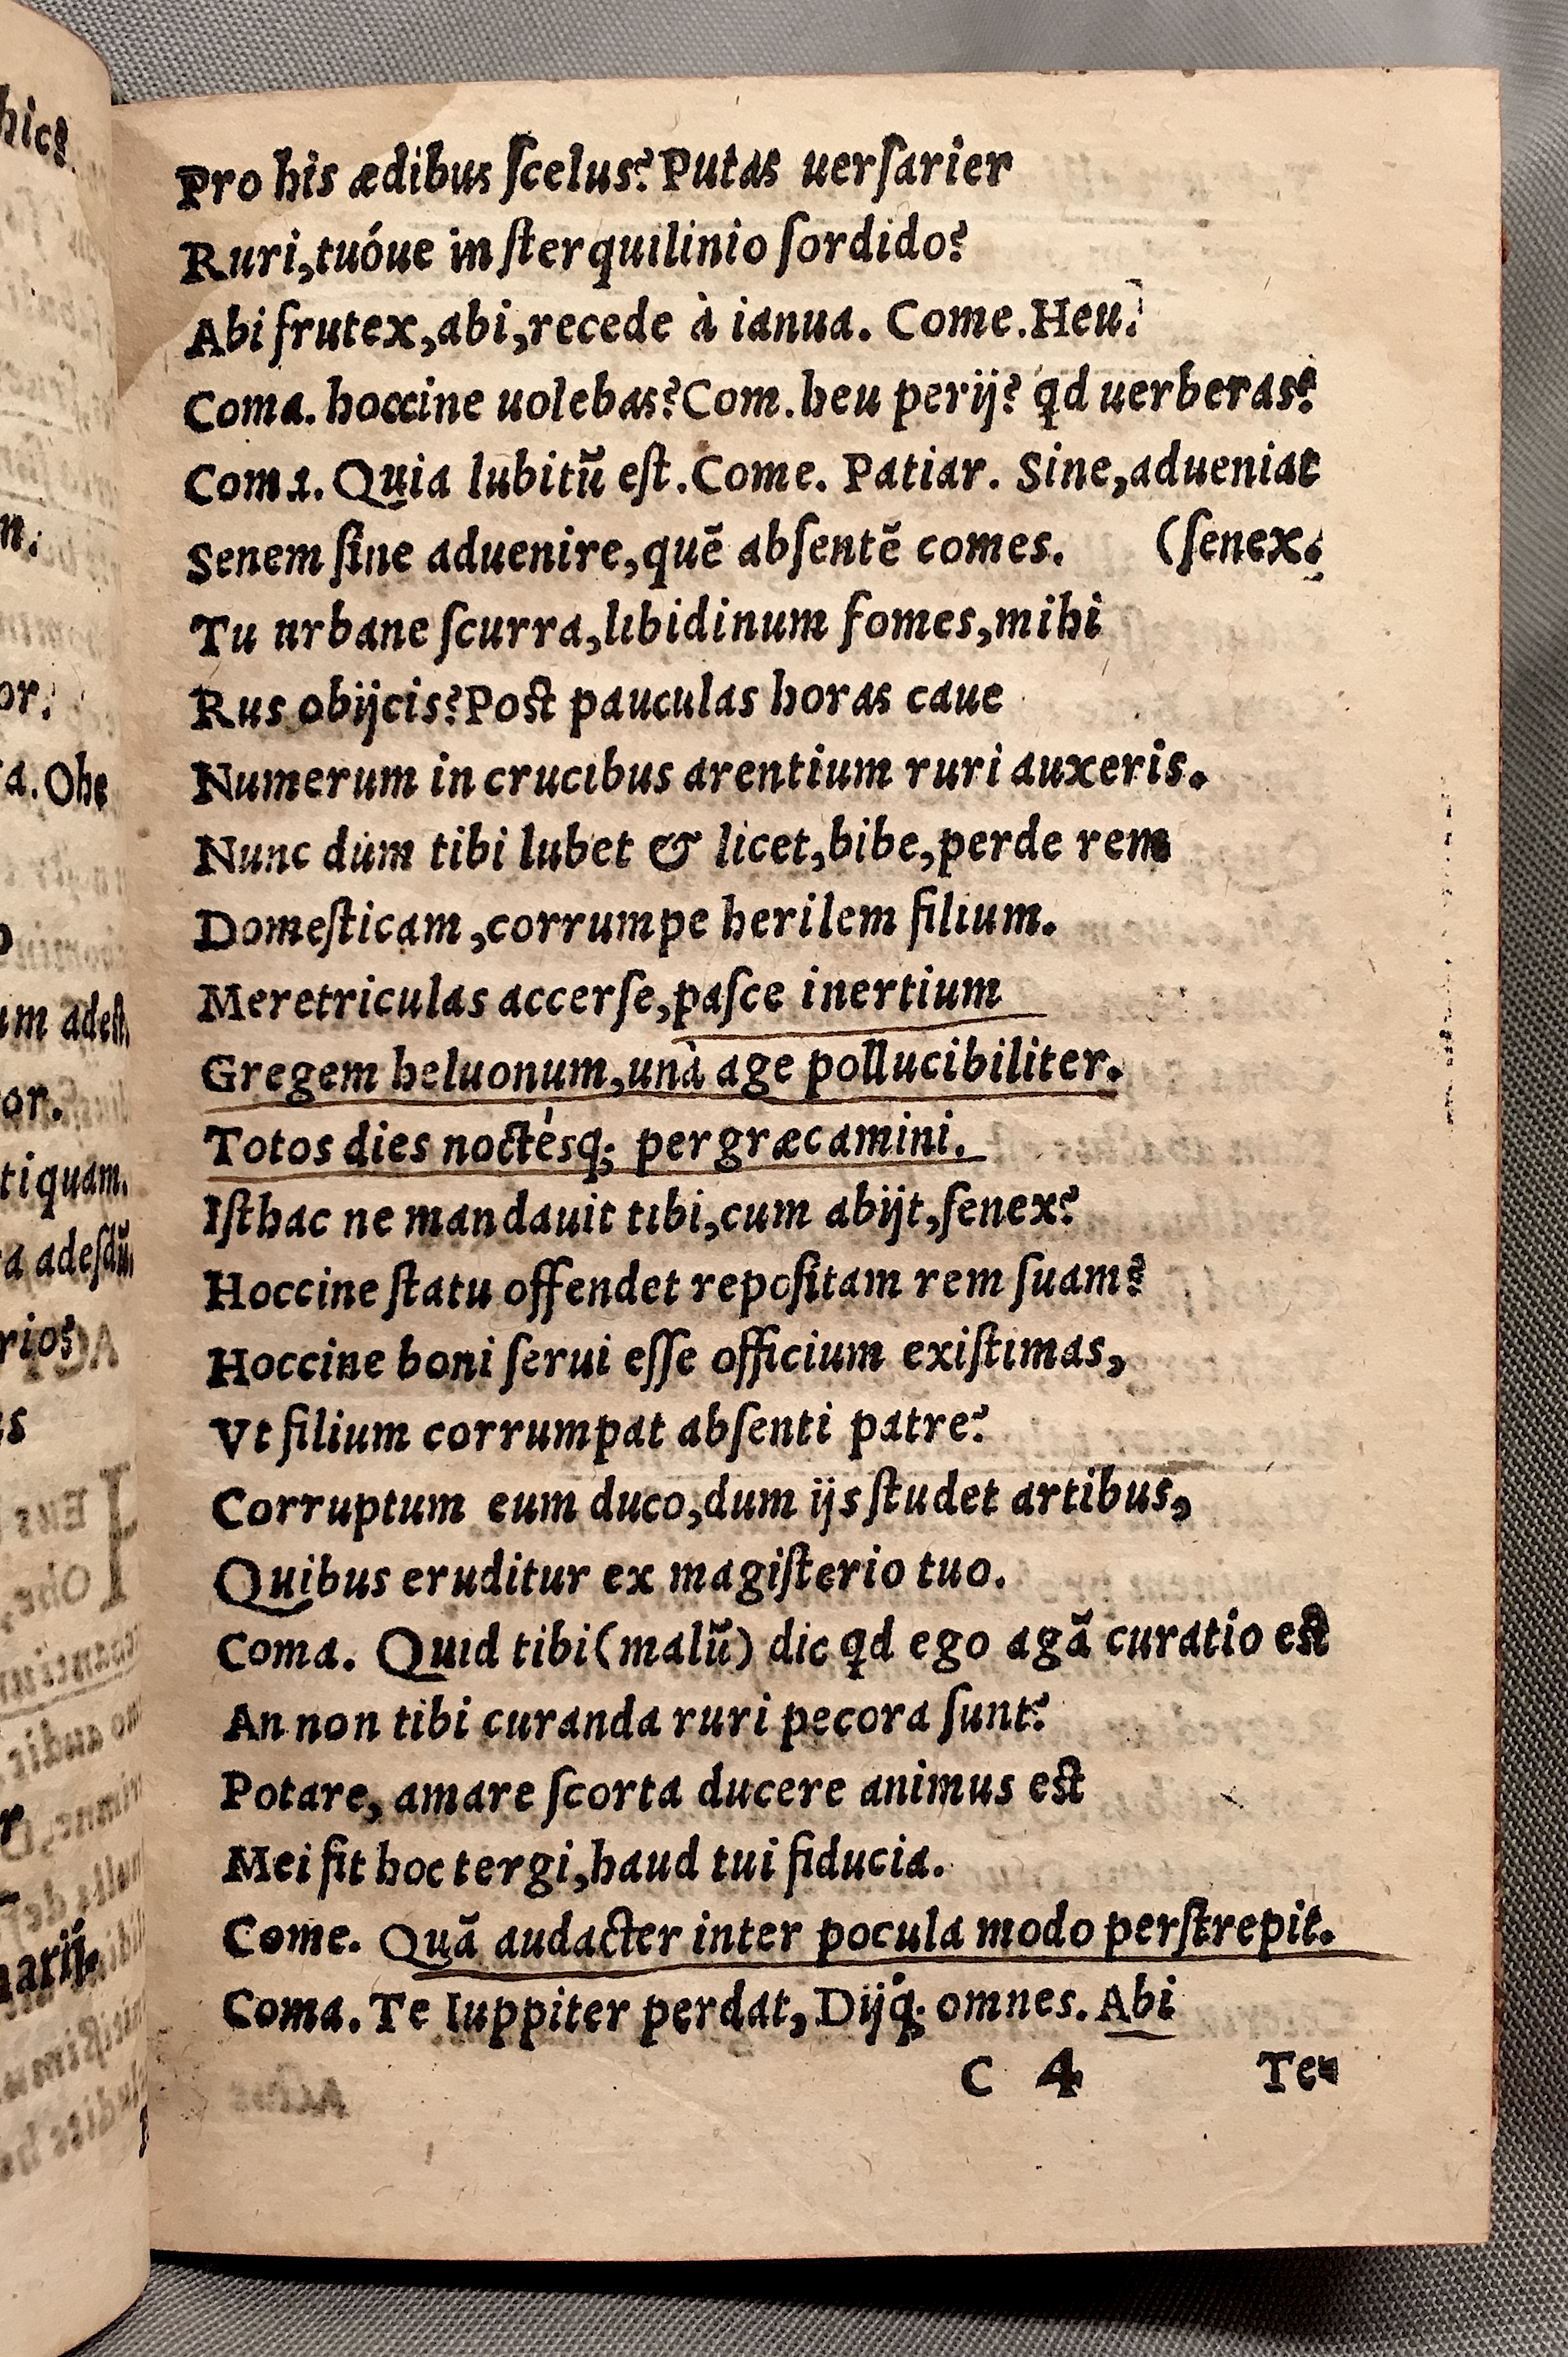 hic?
n.
or.
ra. Ohe
um adest
or.
tiquam.
ra adesdū,
rios?
us
r
narij.
Pro his ædibus ſcelus? Putas uerſarier
Ruri, tuóue in ſterquilinio ſordido?
Abi frutex, abi, recede à ianua. Come. Heu?
Coma. hoccine uolebas? Com. heu perij? qd uerberas?
Coma. Quia lubitũ eſt. Come. Patiar. Sine, adueniat
Senem ſine aduenire, quẽ abſentẽ comes. (ſenex.
Tu urbane ſcurra, libidinum fomes, mihi
Rus obijcis? Poſt pauculas horas caue
Numerum in crucibus arentium ruri auxeris.
Nunc dum tibi lubet & licet, bibe, perde rem
Domeſticam, corrumpe herilem filium.
Meretriculas accerſe, paſce inertium
Gregem heluonum, unà age pollucibiliter.
Totos dies noctésq; pergræcamini.
Iſthac ne mandauit tibi, cum abijt, ſenex?
Hoccine ſtatu offendet repoſitam rem ſuam?
Hoccine boni ſerui eſſe officium exiſtimas,
Vt filium corrumpat abſenti patre?
Corruptum eum duco, dum ijs ſtudet artibus,
Quibus eruditur ex magiſterio tuo.
Coma. Quid tibi (malũ) dic qd ego agã curatio eſt
An non tibi curanda ruri pecora ſunt?
Potare, amare ſcorta ducere animus eſt
Mei fit hoc tergi, haud tui fiducia.
Come. Quã audacter inter pocula modo perſtrepit.
Coma. Te Iuppiter perdat, Dijq; omnes. Abi
C 4 Te-